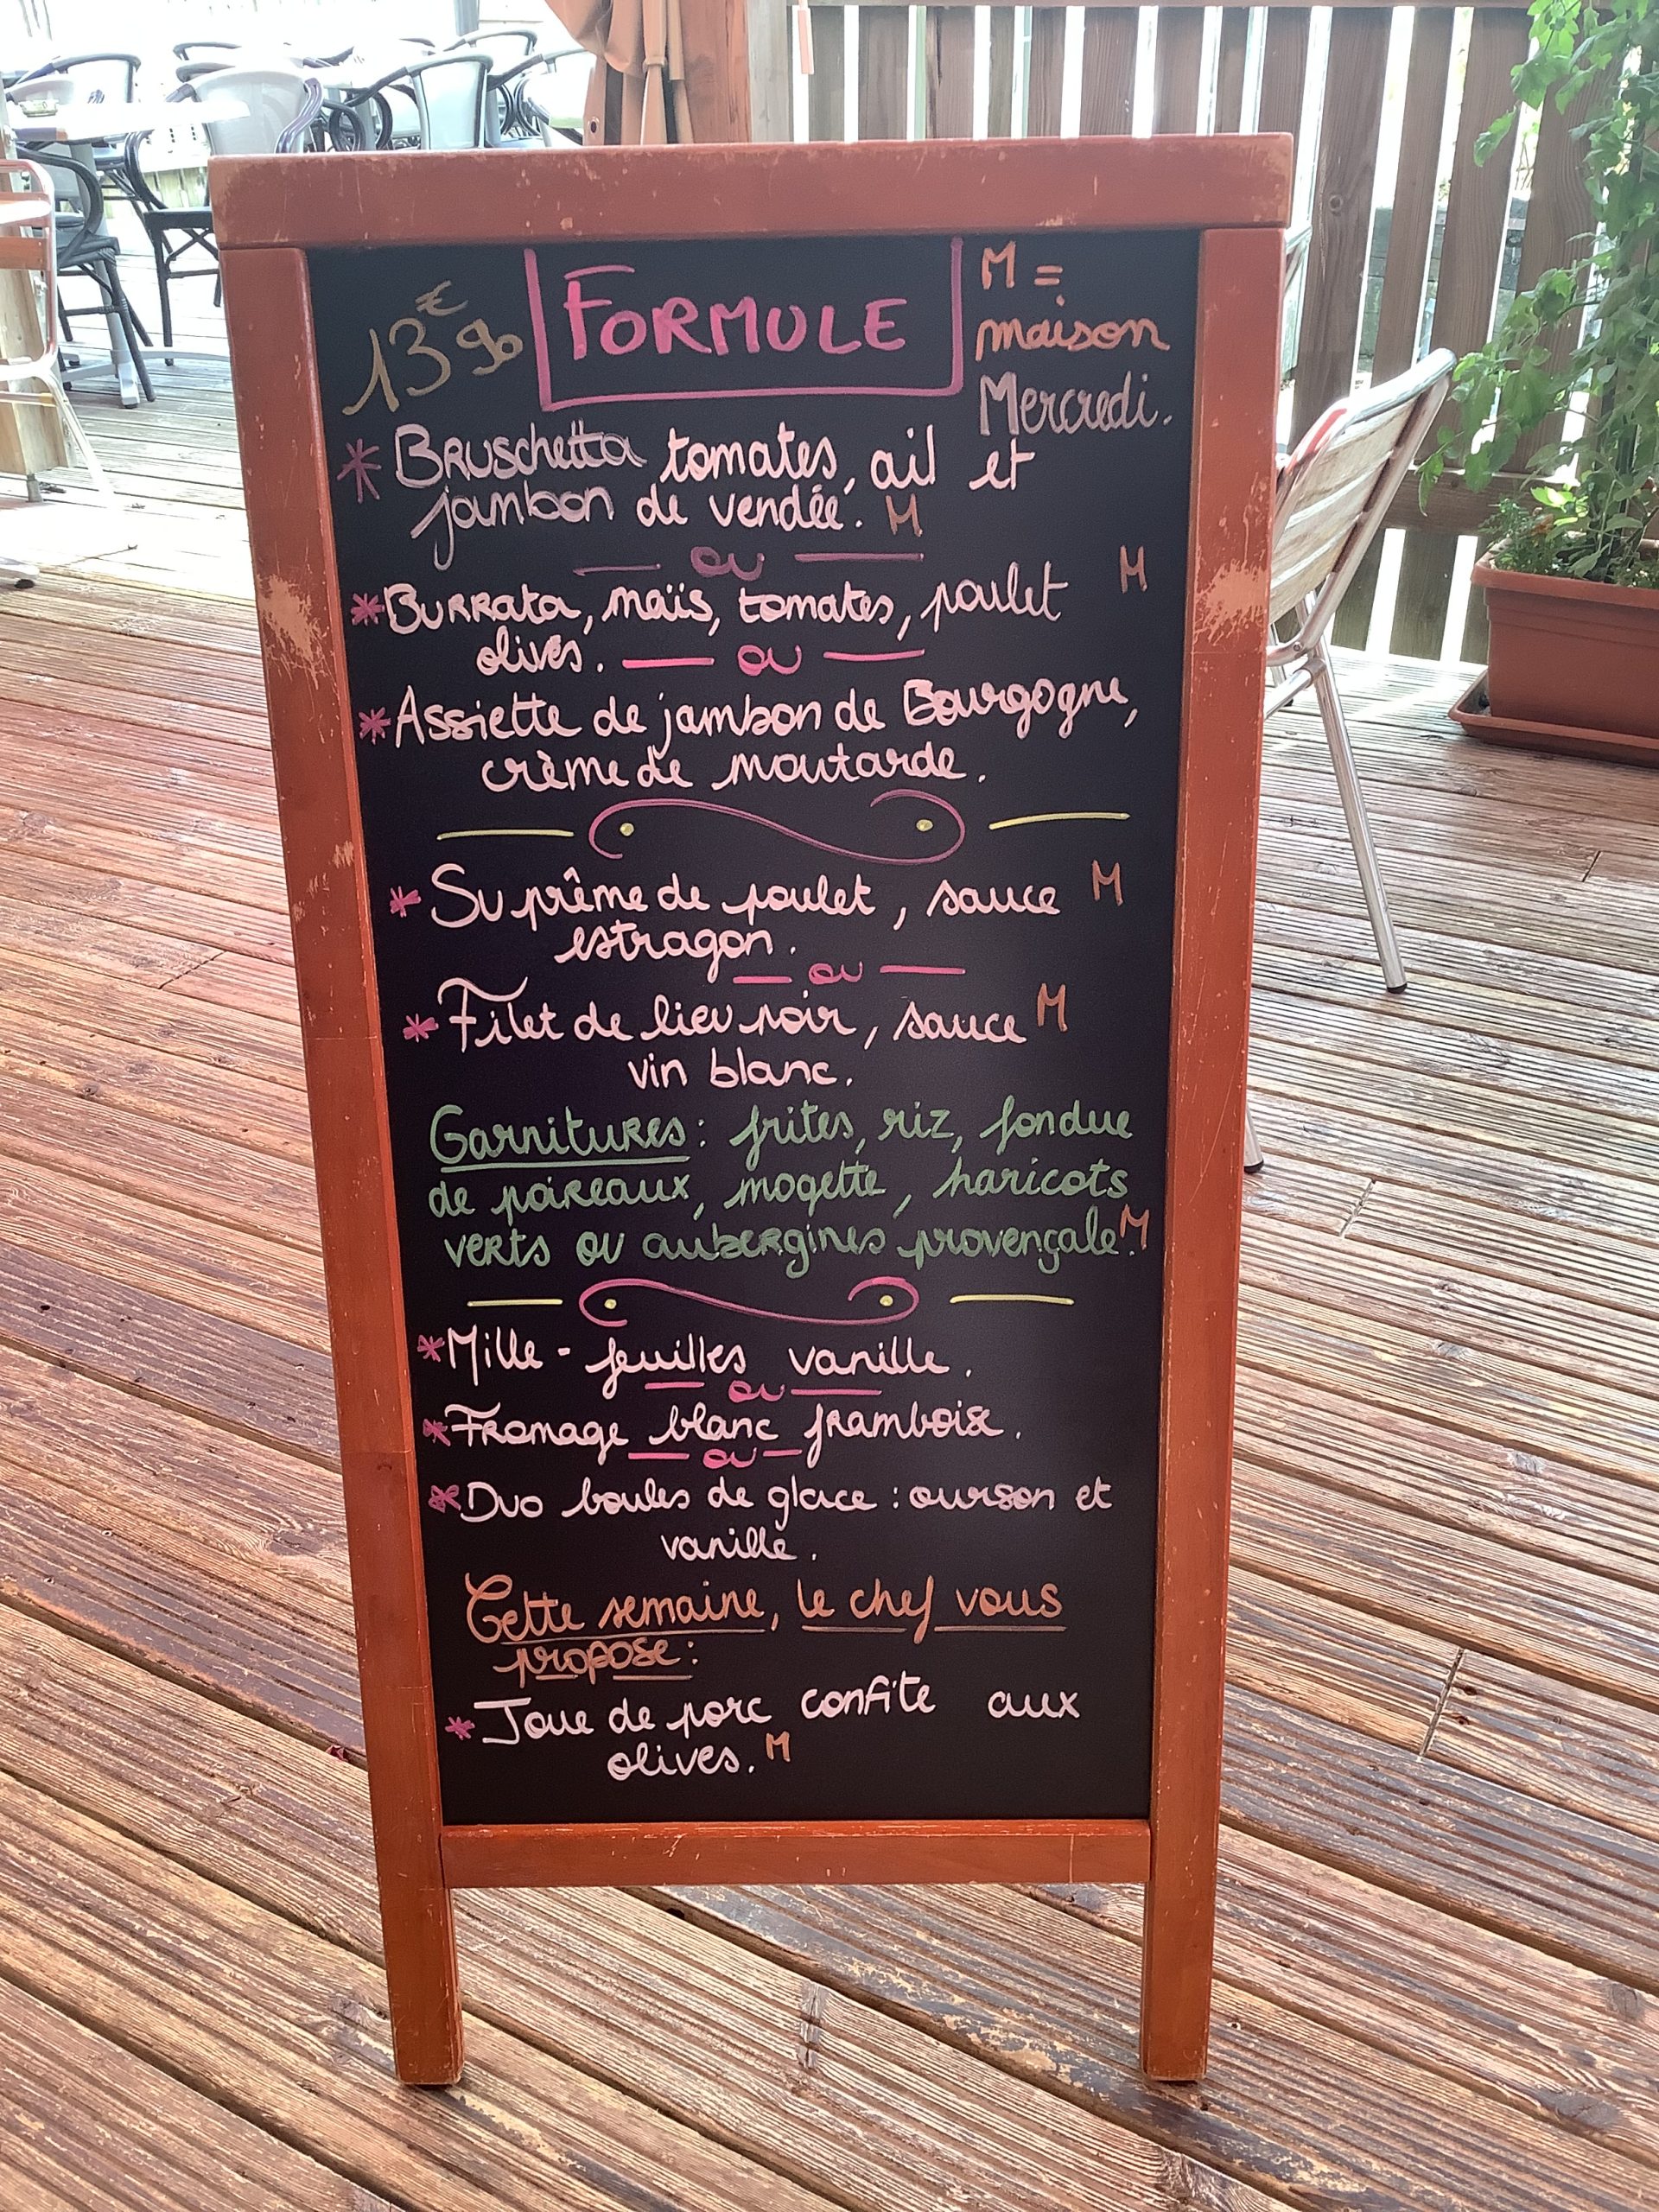 13€90 FORMULE M =
maison
Mercredi.
* Bruschetta tomates, ail et
jambon de vendée. M
— ou —
* Burrata, maïs, tomates, poulet M
olives. — ou —
* Assiette de jambon de Bourgogne,
crème de moutarde.
* Suprême de poulet, sauce M
estragon.
— ou —
* Filet de lieu noir, sauce M
vin blanc.
Garnitures : frites, riz, fondue
de poireaux, mogette, haricots
verts ou aubergines provençale. M
* Mille-feuilles vanille.
— ou —
* Fromage blanc framboise.
— ou —
* Duo boules de glace : ourson et
vanille.
Cette semaine, le chef vous
propose :
* Joue de porc confite aux
olives. M